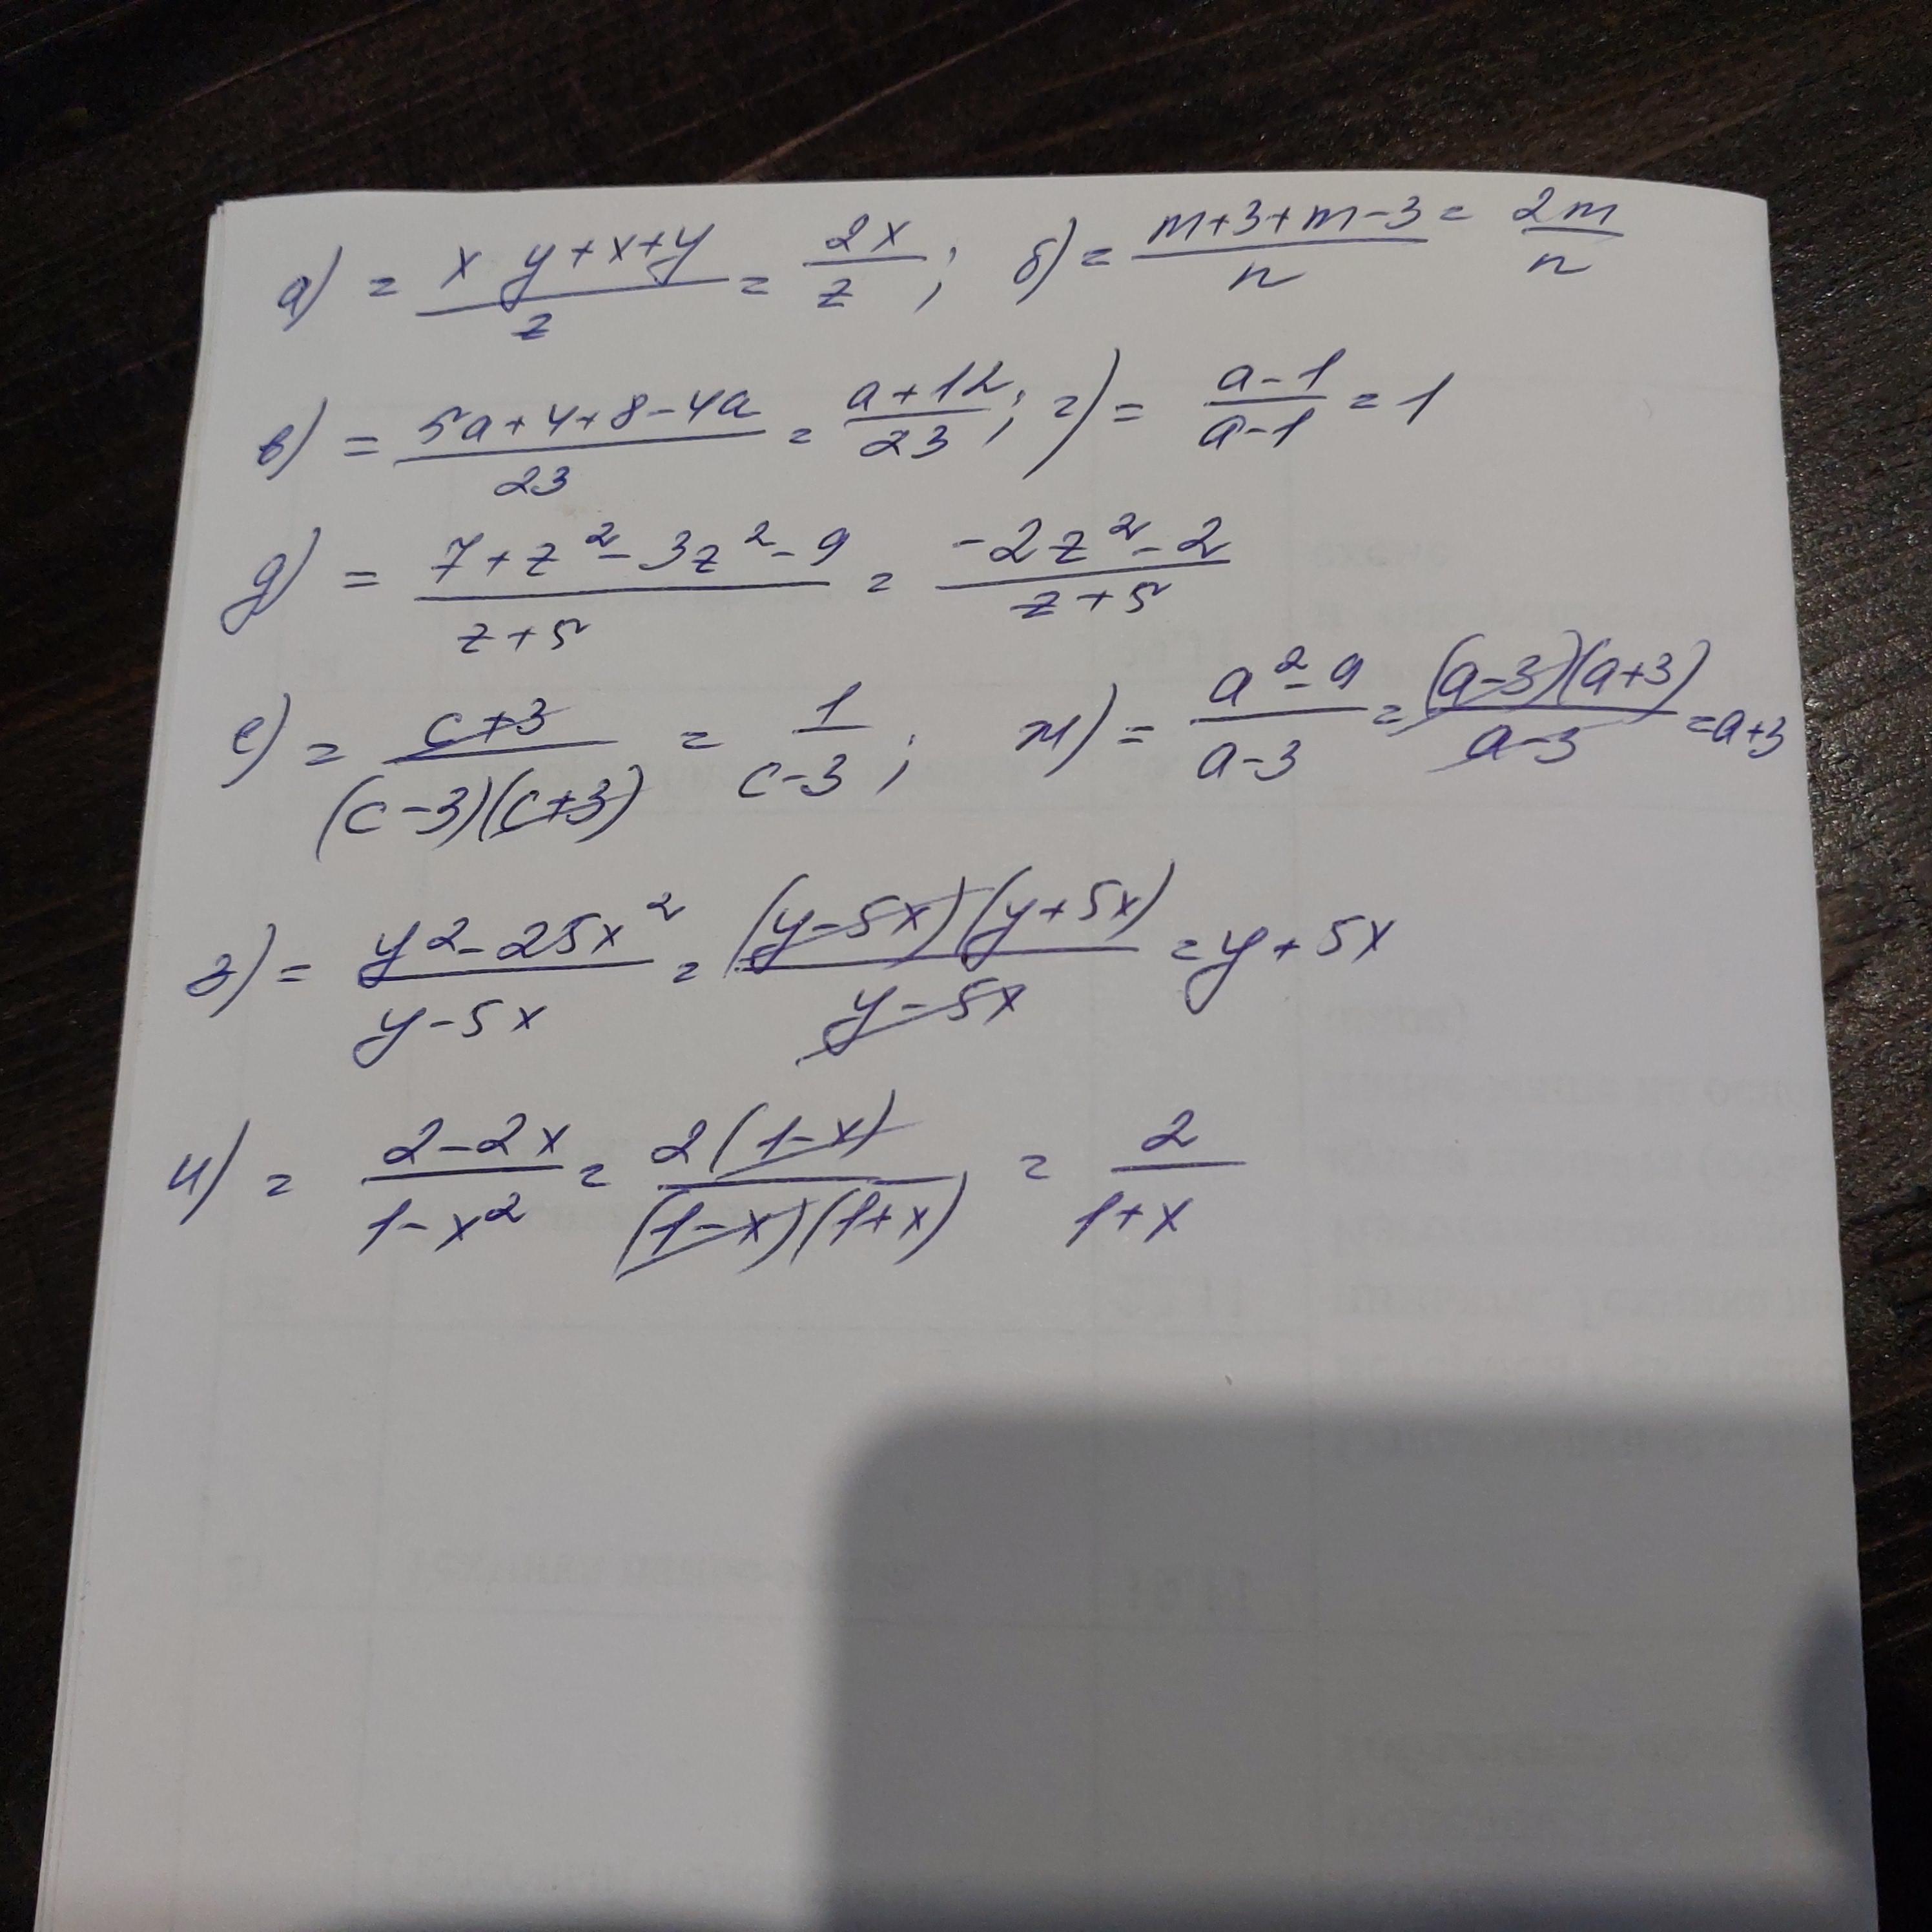 а) = (x y + x + y)/z = 2x/z ; б) = (m+3+m-3)/n = 2m/n
в) = (5a+4+8-4a)/23 = (a+12)/23 ; г) = (a-1)/(a-1) = 1
д) = (7+z²-3z²-9)/(z+5) = (-2z²-2)/(z+5)
е) = (c+3)/((c-3)(c+3)) = 1/(c-3) ; ж) = (a²-9)/(a-3) = ((a-3)(a+3))/(a-3) = a+3
з) = (y²-25x²)/(y-5x) = ((y-5x)(y+5x))/(y-5x) = y+5x
и) = (2-2x)/(1-x²) = (2(1-x))/((1-x)(1+x)) = 2/(1+x)